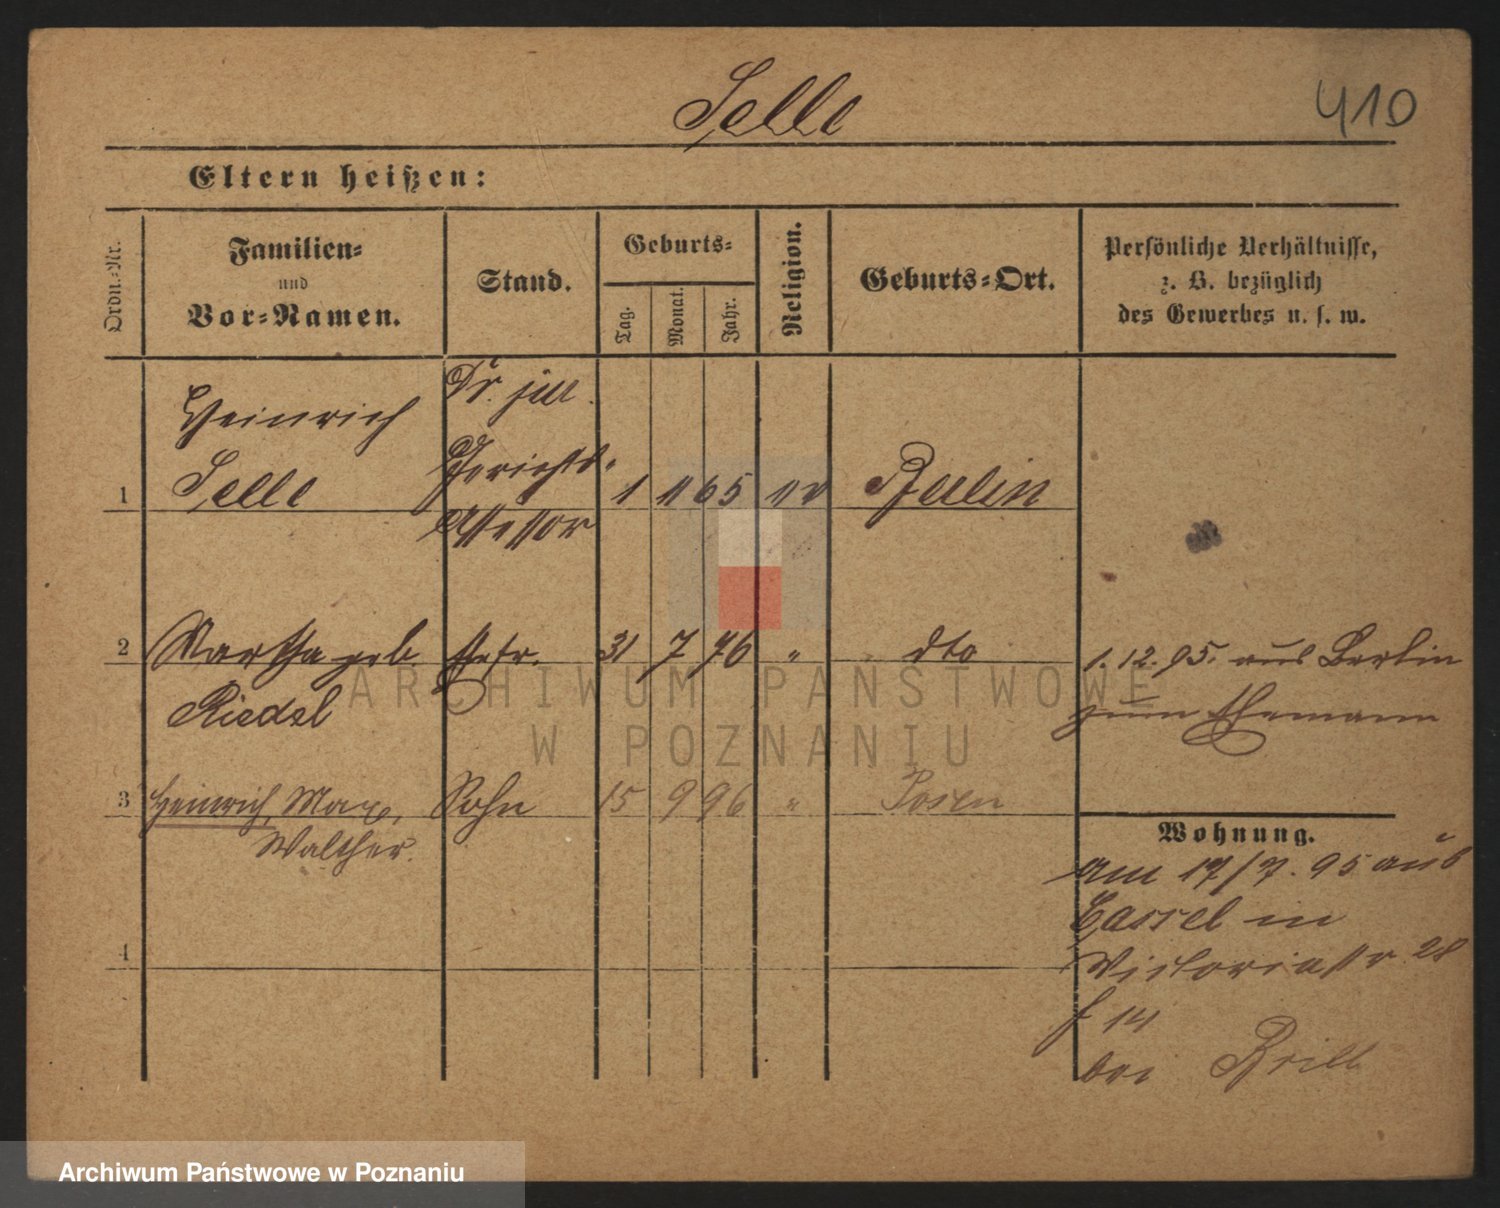 Selle
410
Eltern heißen:
Ordn.-Nr.
Familien-
und
Vor-Namen.
Stand.
Geburts-
Tag.
Monat.
Jahr.
Religion.
Geburts-Ort.
Persönliche Verhältnisse,
z. B. bezüglich
des Gewerbes u. s. w.
1
Heinrich
Selle
Dr. jur.
Gerichts-
Assessor
1 11 65
ev
Berlin
2
Martha geb.
Riedel
Ehefr.
31 7 76
"
dto
1.12.95. aus Berlin
zum Ehemann
3
Heinrich, Max,
Walther.
Sohn
15 9 96
"
Posen
Wohnung.
am 17/7. 95 aus
Cassel in
Victoriastr. 28
f 14
bei Brill
4
ARCHIWUM PAŃSTWOWE
W POZNANIU
Archiwum Państwowe w Poznaniu